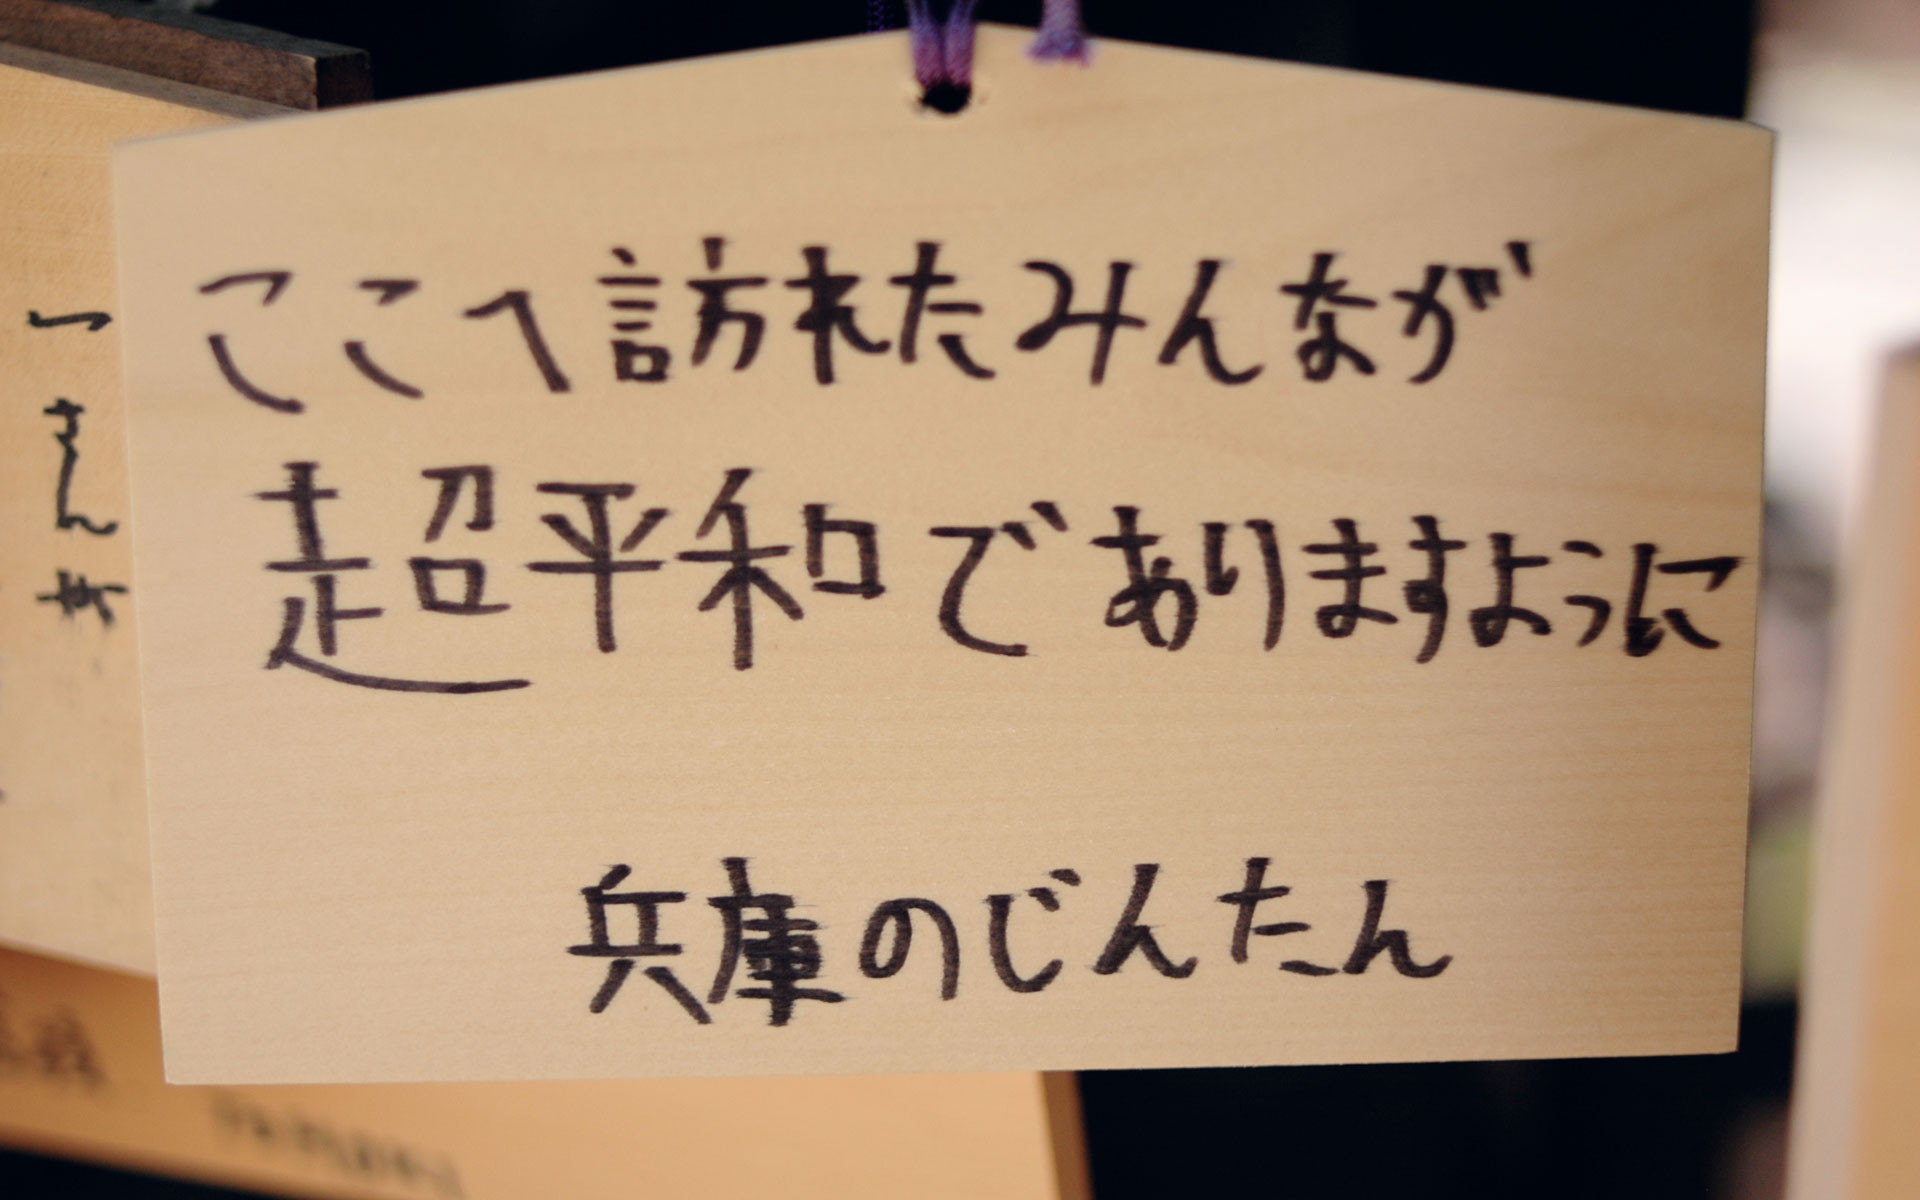 ここへ訪れたみんなが
超平和でありますように
兵庫のじんたん